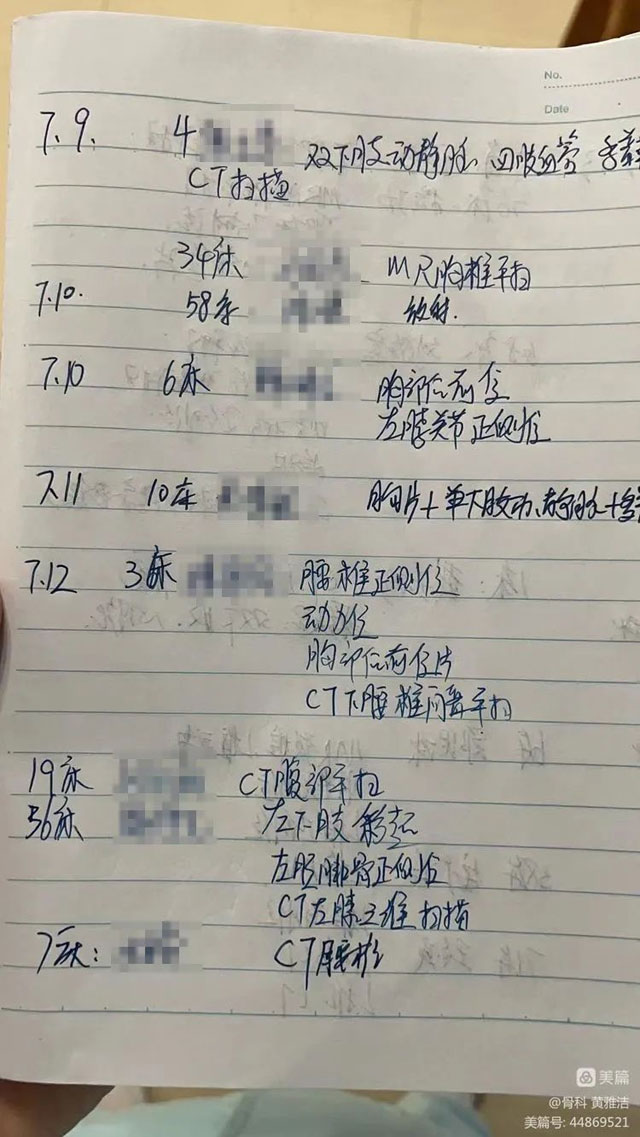 No.
Date
7.9. 4 双下肢动静脉、四肢血管
CT扫描
34床 MR胸椎平扫
7.10. 58床 放射.
7.10 6床 胸部后前位
左膝关节正侧位
7.11 10床 胸片+单下肢动、静脉+
7.12 3床 腰椎正侧位
动力位
胸部后前位片
CT下腰椎间盘平扫
19床 CT腹部平扫
56床 左下肢彩超
左胫腓骨正侧位
CT左膝三维扫描
7床: CT腰椎
美篇
@骨科 黄雅洁
美篇号: 44869521